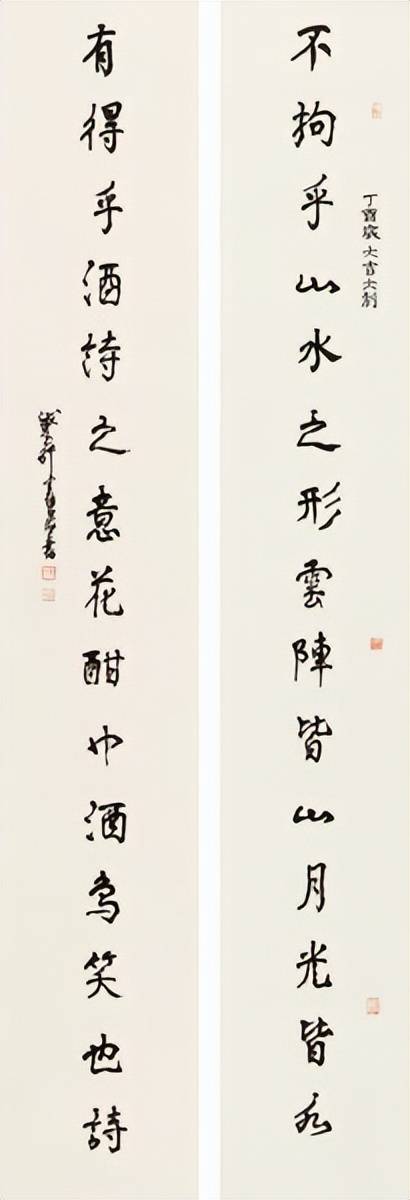 丁酉歲大吉大利
不拘乎山水之形雲陣皆山月光皆水
有得乎酒詩之意花酣也酒鳥笑也詩